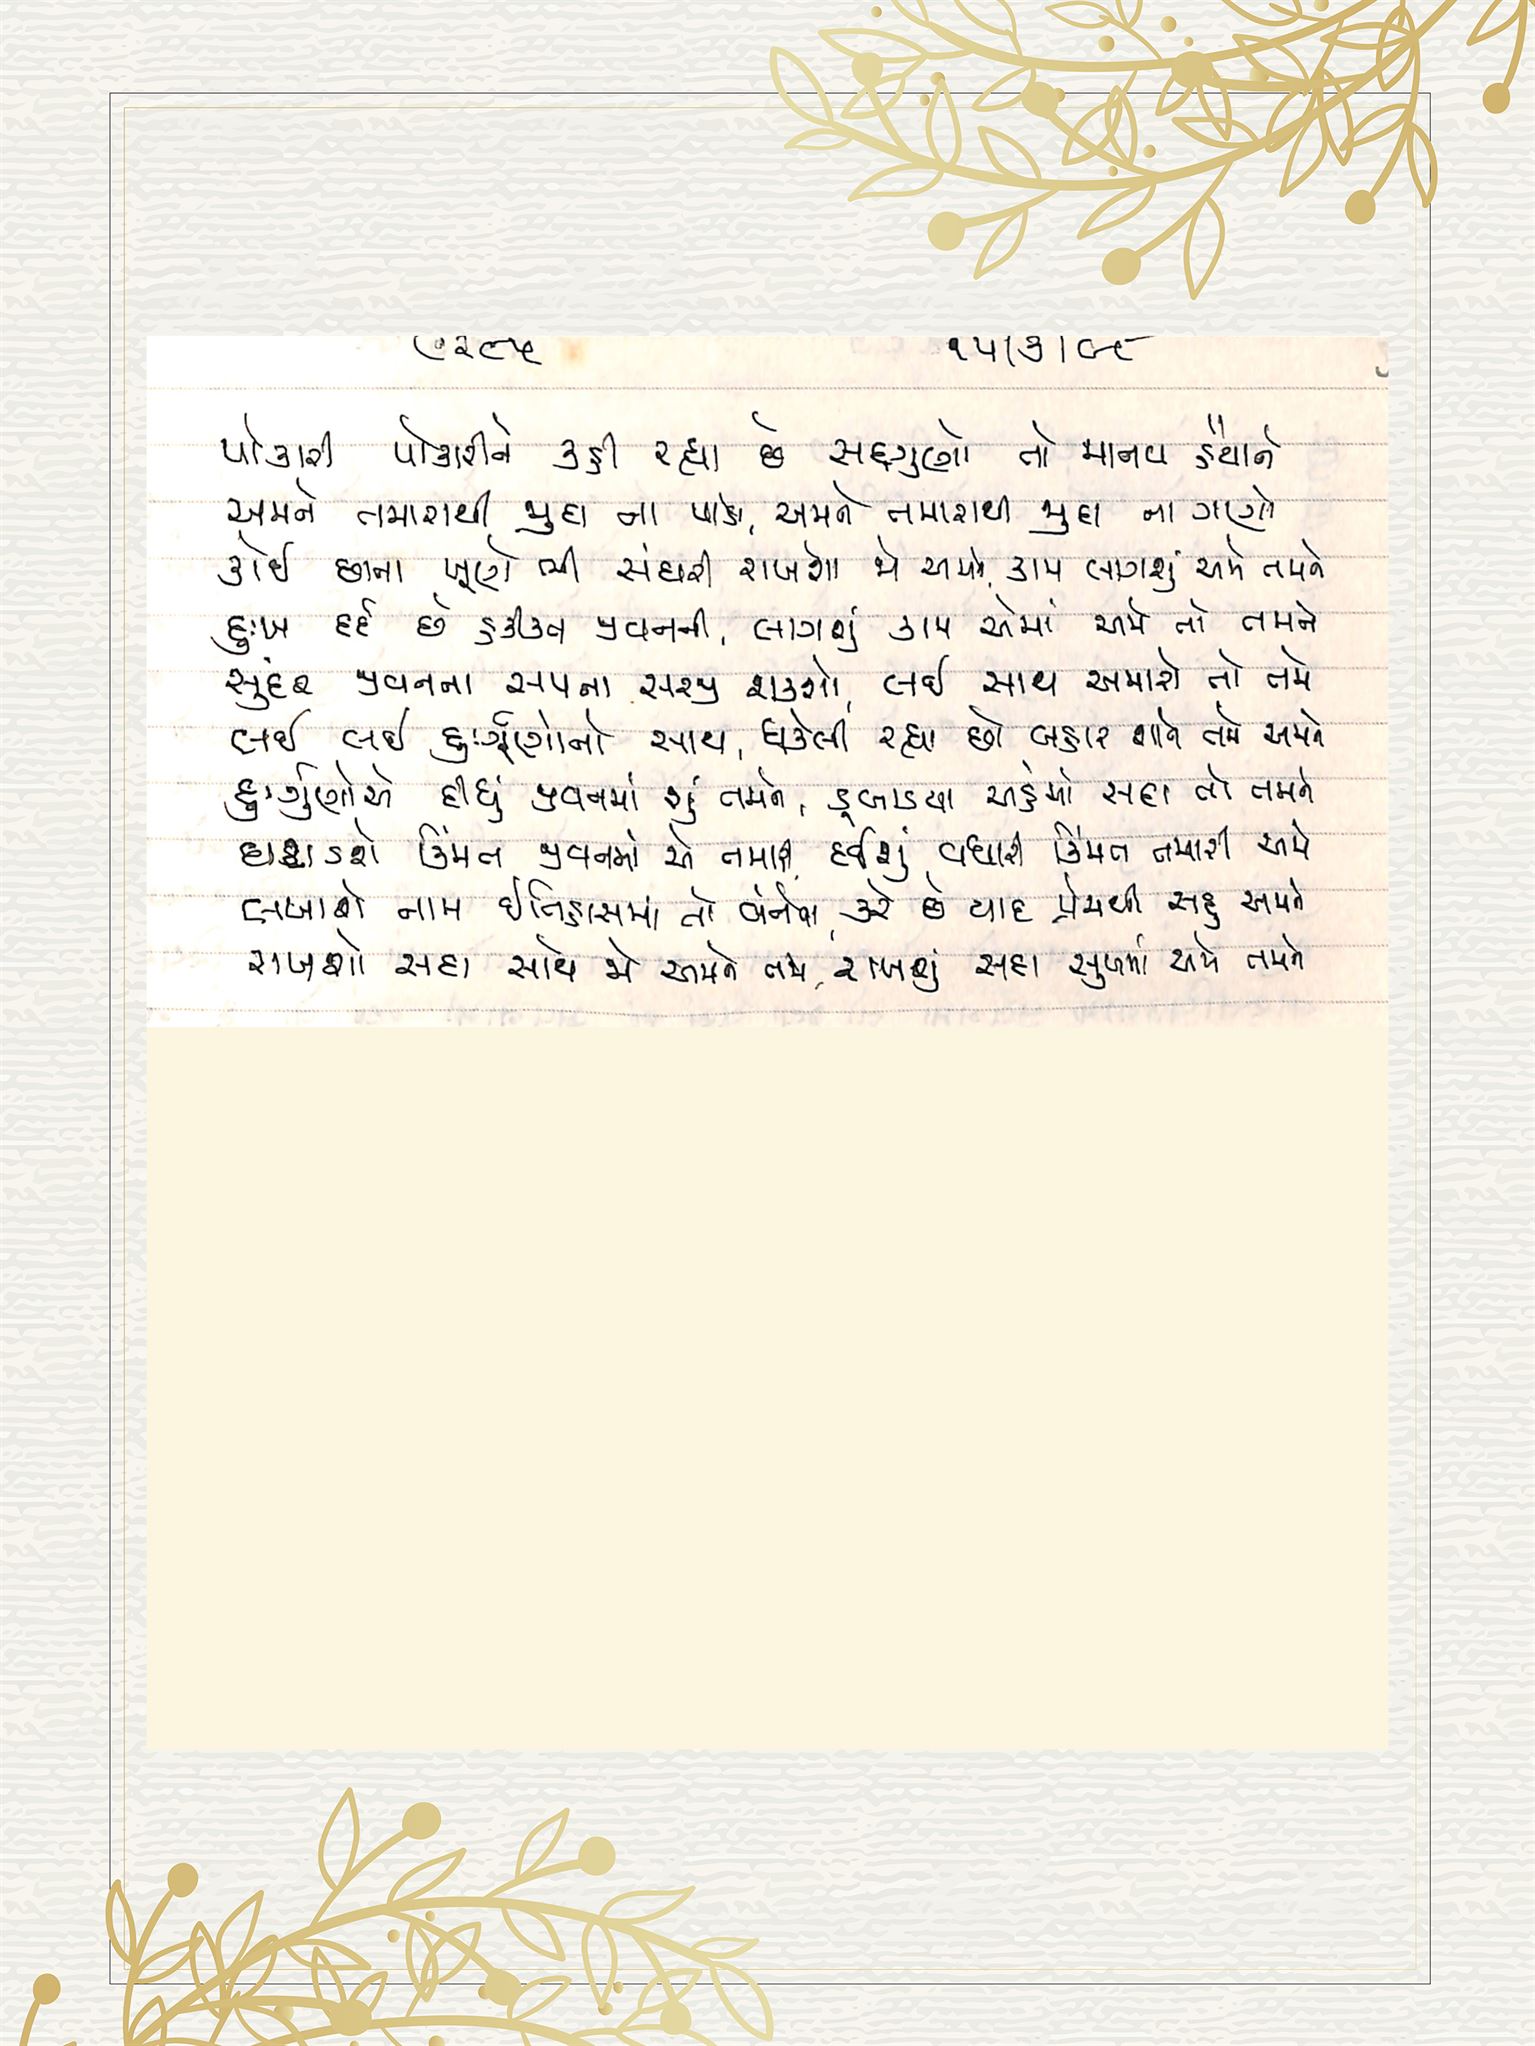 ૭૨૯૫ ૧૫/૩/૯૮
પોકારી પોકારીને કહી રહ્યા છે સદ્દગુણો તો માનવ હૈયાને
અમને તમારાથી જુદા ના પાડો, અમને તમારાથી જુદા ના ગણો
કોઈ છાના ખૂણે ભી સંઘરી રાખશો જો અમને, કામ લાગશું અમે તમને
દુઃખ દર્દ છે હકીકત જીવનની, લાગશું કામ એમાં અમે તો તમને
સુંદર જીવનના સપના સરજી શકશો, લઈ સાથ અમારો તો તમે
લઈ લઈ દુઃર્ગુણોનો સાથ, ધકેલી રહ્યા છો બહાર શાને તમે અમને
દુઃર્ગુણોએ દીધું જીવનમાં શું તમને, ડૂબાડયા અહંમાં સદા તો તમને
ઘટાડશે કિંમત જીવનમાં એ તમારી, દઈશું વધારી કિંમત તમારી અમે
લખાશે નામ ઈતિહાસમાં તો બંનેના, કરે છે યાદ પ્રેમથી સહુ અમને
રાખશો સદા સાથે જો અમને તમે, રાખશું સદા સુખમાં અમે તમને